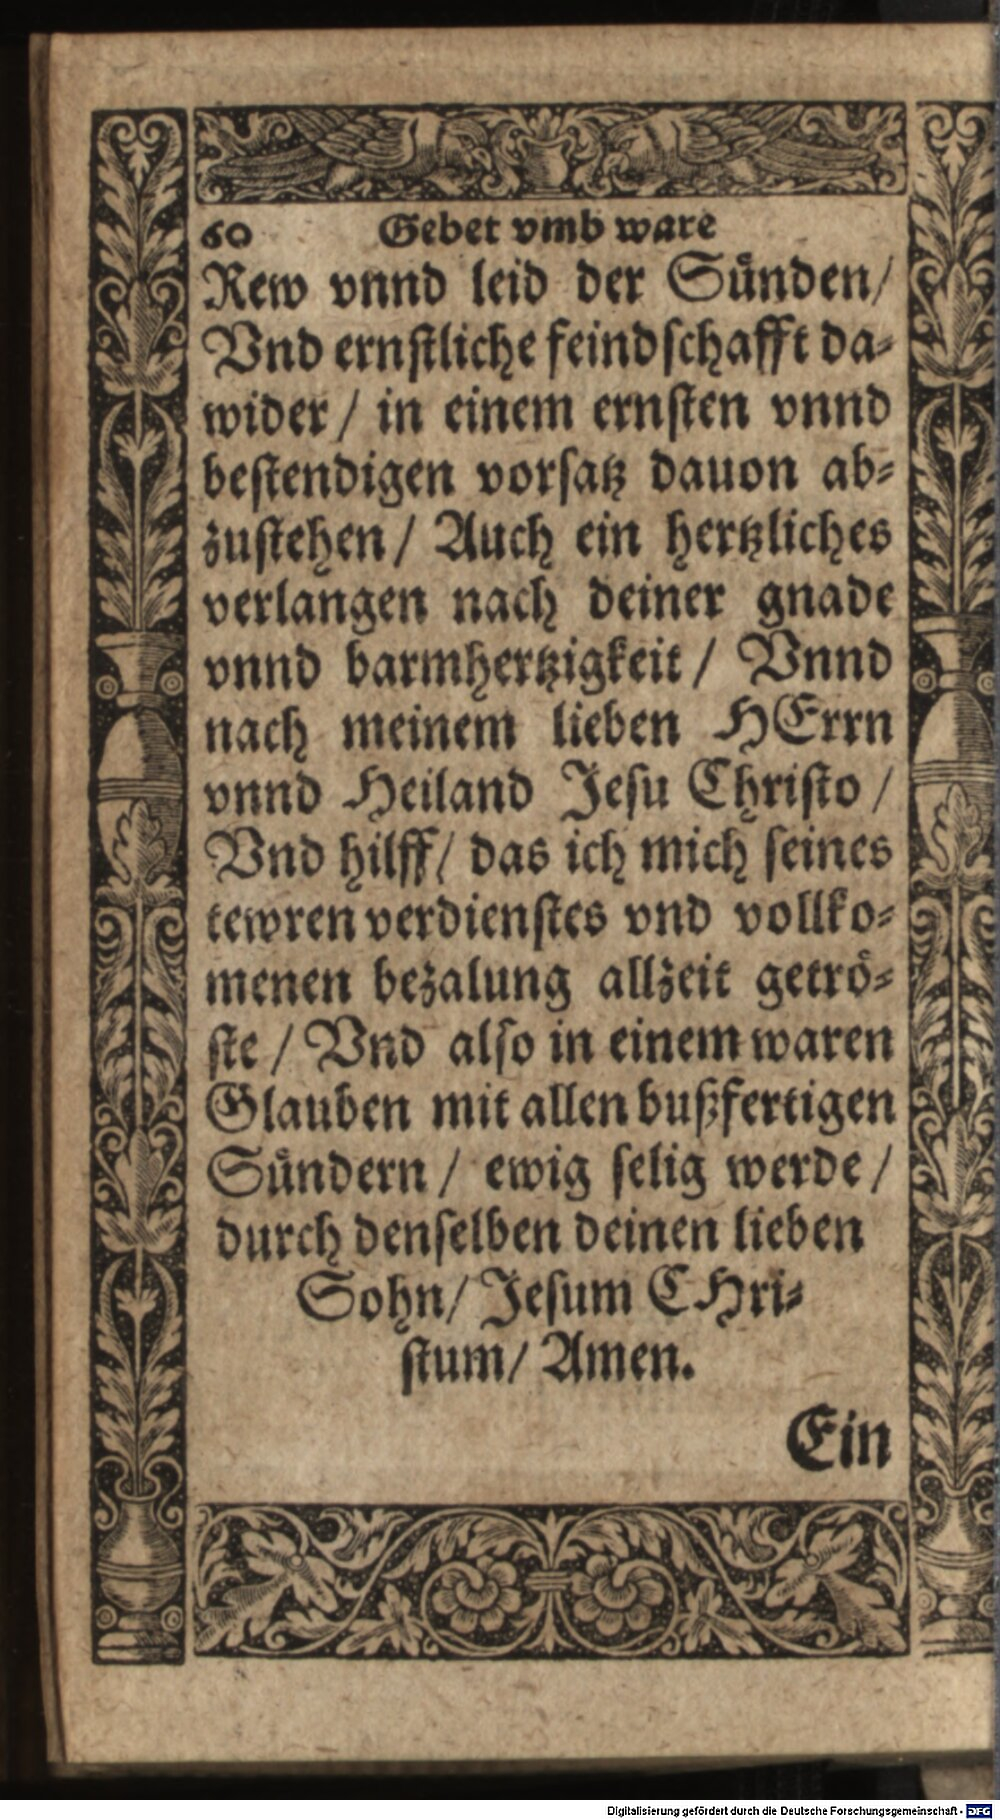 60 Gebet vmb ware
Rew vnnd leid der Sünden/
Vnd ernstliche feindschafft da-
wider/ in einem ernsten vnnd
bestendigen vorsatz dauon ab-
zustehen/ Auch ein hertzliches
verlangen nach deiner gnade
vnnd barmhertzigkeit/ Vnnd
nach meinem lieben HErrn
vnnd Heiland Jesu Christo/
Vnd hilff/ das ich mich seines
tewren verdienstes vnd vollko-
menen bezalung allzeit getrö-
ste/ Vnd also in einem waren
Glauben mit allen bußfertigen
Sündern/ ewig selig werde/
durch denselben deinen lieben
Sohn/ Jesum CHri-
stum/ Amen.
Ein
Digitalisierung gefördert durch die Deutsche Forschungsgemeinschaft - DFG